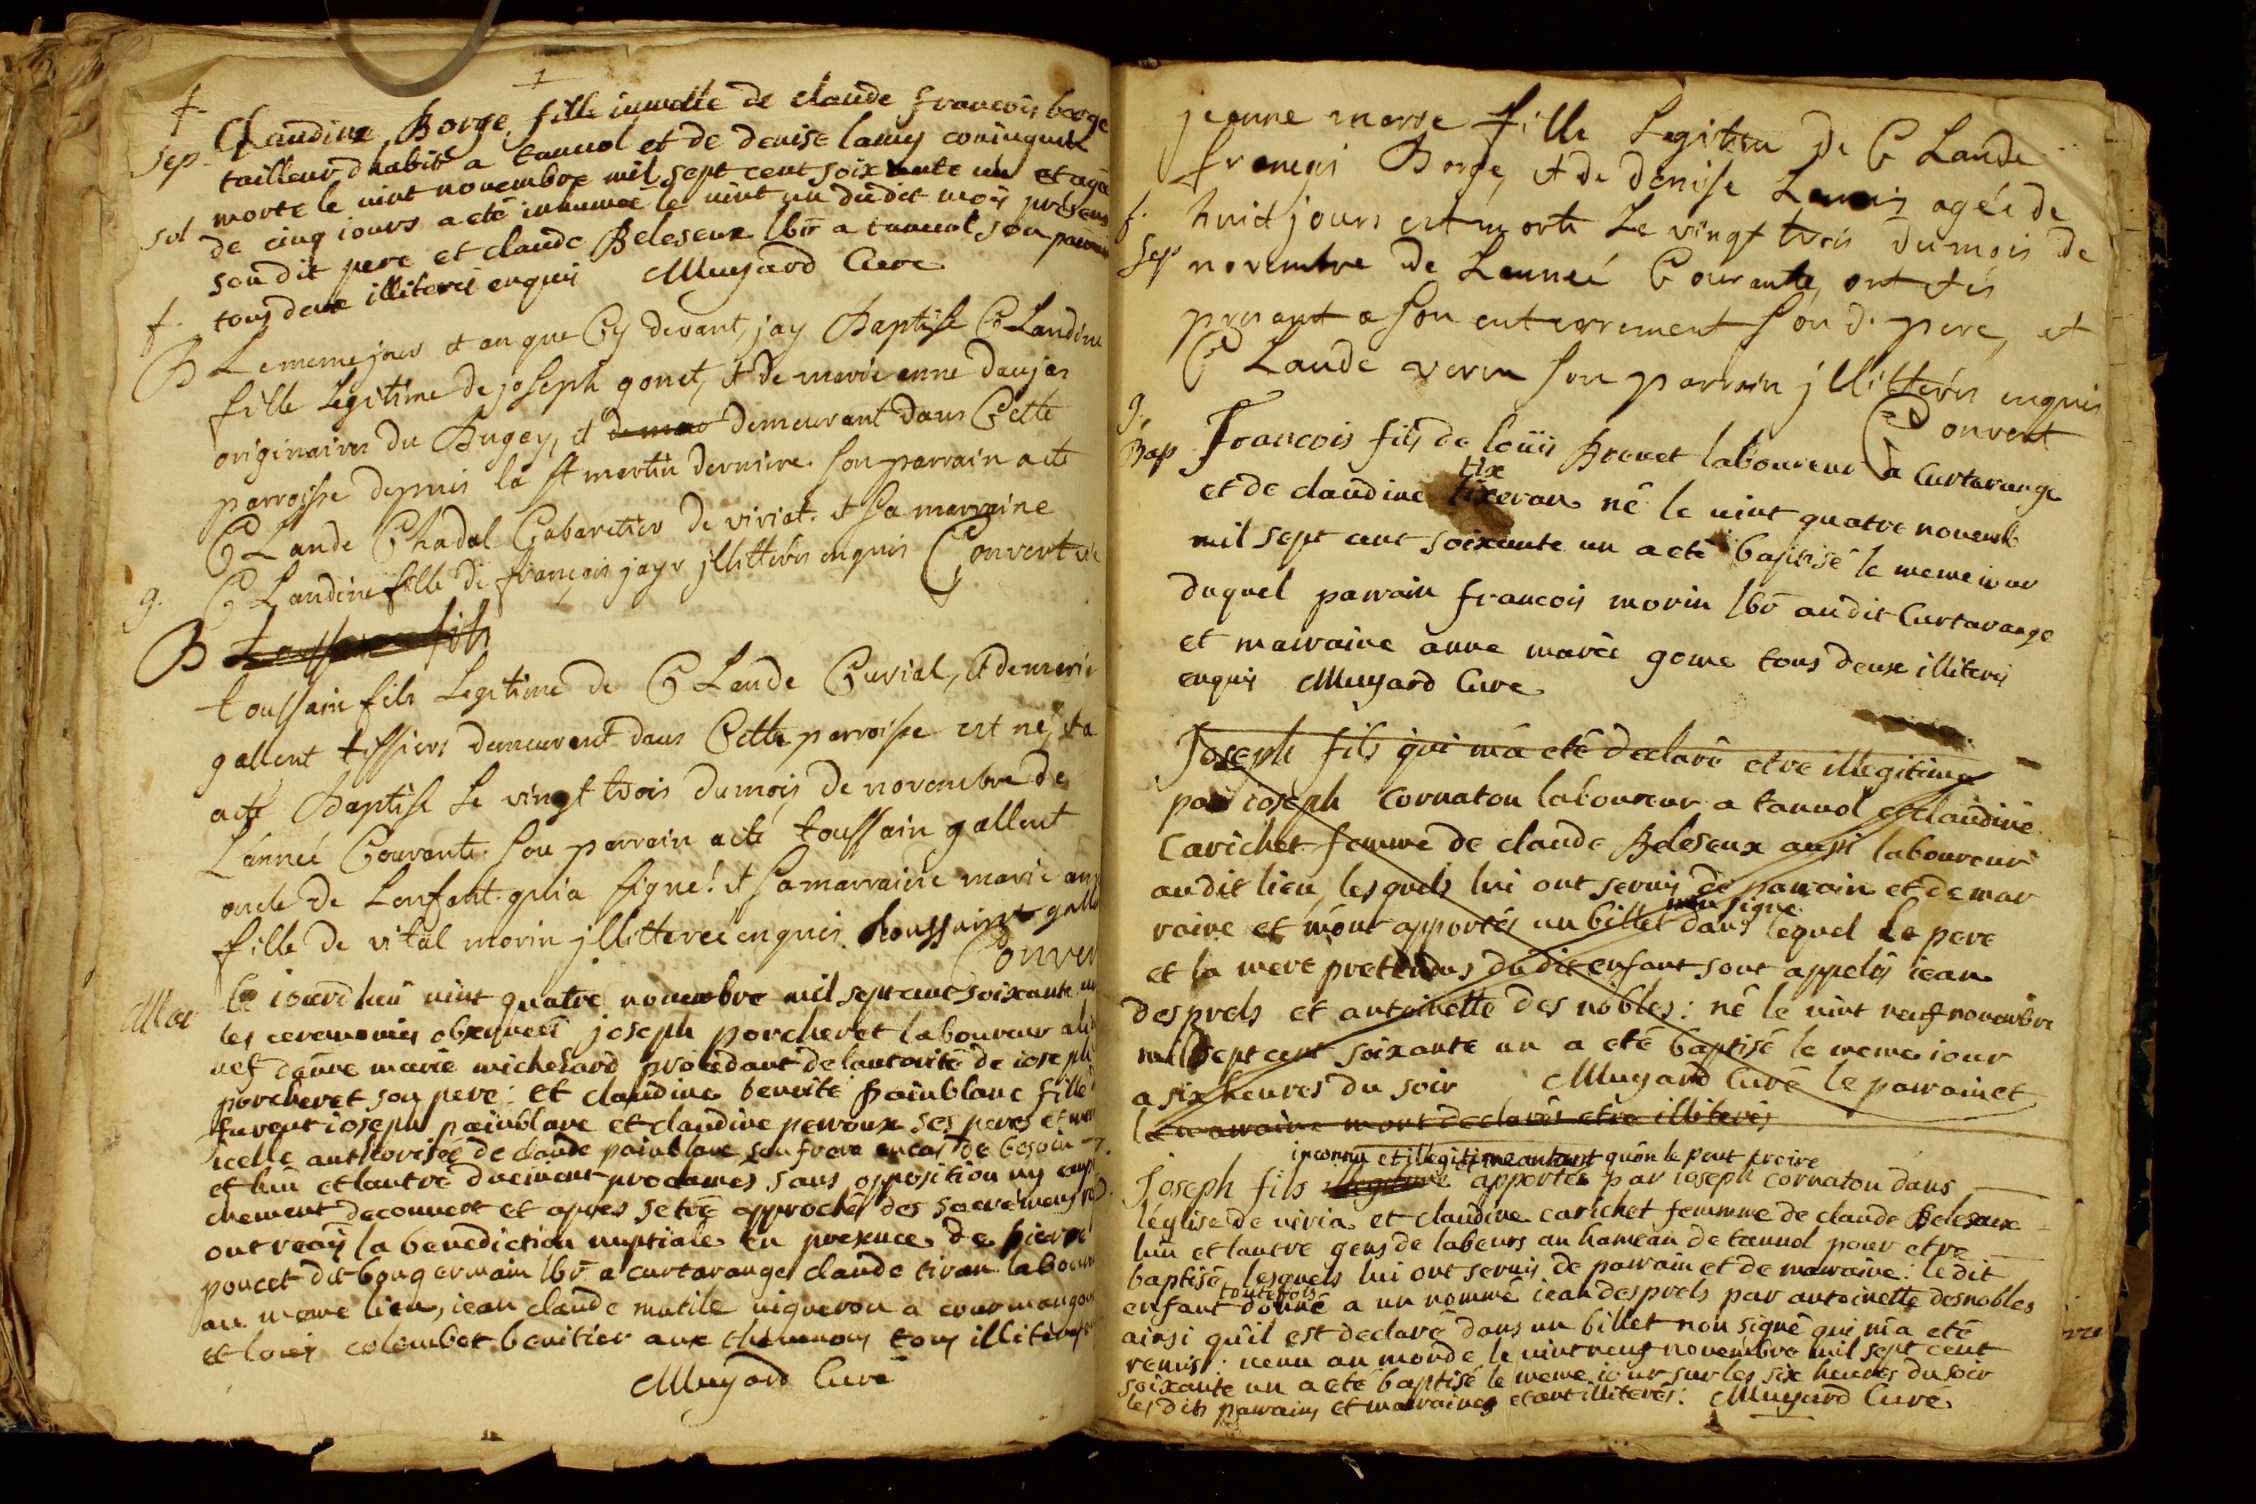 f.
Claudine Borge fille iumelle de claude francois borge
sep. tailleur dhabits a tannol et de denise lamy coniugues
morte le vint novembre mil sept cent soixante un et agée
de cinq iours a eté inhumée le vint un dudit mois presens
sol son dit pere et claude Beleseux lbr a tannol son parrain
tous deux illiterés enquis Mugard Curé
f.
B Le meme jour et an que Cy devant, jay Baptisé Claudine
fille Legitime de joseph gonet, et de marie anne daujas
originaires du Bugey, et demeurant dans Cette
parroisse depuis la st martin derniere. son parrain a eté
Claude Chadal Cabaretier de viriat. et sa marraine
Claudine fille de françois jayr jllitterés enquis Convert vic
g.
B toussain fils
toussain fils Legitime de Claude Curial, et de marie
gallent tissiers demeurent dans Cette parroisse est né, et a
aeté Baptisé Le vingt trois du mois de novembre de
L'année Courante. son parrain a eté toussain gallent
oncle de Lenfant. qui a signé. et sa marraine marie anne
fille de vital morin jllitteree enquis. toussaint galle
Conver
Mar Ce iourdhui vint quatre novembre mil sept cent soixante un
les ceremonies observeés joseph porcheret laboureur
nef danne marie michelard procedant de lautorité de ioseph
porcheret son pere: et claudine benoite painblanc fille d
furent ioseph painblanc et claudine perroux ses peres et mere
icelle authorisée de claude painblanc son frere en cas de besoin
et lun et lautre duement proclamés sans opposition ny empe
chement decouvert et apres setre approchés des sacremens
ont recuü la benediction nuptiale en presence de pierre
poncet dit bongermain lbr a curtarange claude tiran laboureur
au meme lieu, iean claude mutile vigneron a courmangoux
et louis colembet benitier aux themenoy tous illiteres
Mugard Curé
jeanne marie fille Legitim de Claude
françois Borge, et de denise Lamis agée de
f. huict jours est morte Le vingt trois du mois de
sep novembre de L'année Courante, ont etés
presant a son enterrement son d. pere, et
Claude verin son parrain jllitterés enquis
Convert
g.
Bap Francois fils de loüis Brevet laboureur a Curtarange
tix
et de claudine tixeran né le vint quatre novemb
mil sept cent soixante un a eté baptisé le meme iour
duquel parrain francois morin lbr audit Curtarange
et marraine anne marie gome tous deux illiterés
enquis Mugard Curé
Joseph fils qui m'a eté declaré etre illegitime
par ioseph Cornaton laboureur a tannol et claudine
Carichet femme de claude Beleseux aussi laboureur
audit lieu, lesquels lui ont servis de parrain et de mar
raine et m'ont apportés un billet non signé dans lequel le pere
et la mere pretendus dudit enfant sont appelés iean
desprels et antoinette des nobles: né le vint neuf novembre
mil sept cent soixante un a eté baptisé le meme iour
a six heures du soir Mugard Curé le parrain et
la marraine m'ont declarés etre illiterés
inconnu et illegitime autant quon le peut croire
Joseph fils illegitime apporté par ioseph cornaton dans
léglise de viria et claudine carichet femmme de claude Beleseux
lun et lautre gens de labeurs au hameau de tannol pour etre
baptisé, lesquels lui ont servis de parrain et de marraine: ledit
toutefois
enfant donné a un nommé iean desprels par antoinette desnobles
ainsi qu'il est declaré dans un billet non signé qui m'a eté
remis: venu au monde le vint neuf novembre mil sept cent
soixante un a eté baptisé le meme iour sur les six heures du soir
les dits parrains et marraines etant illiterés: Mugard Curé